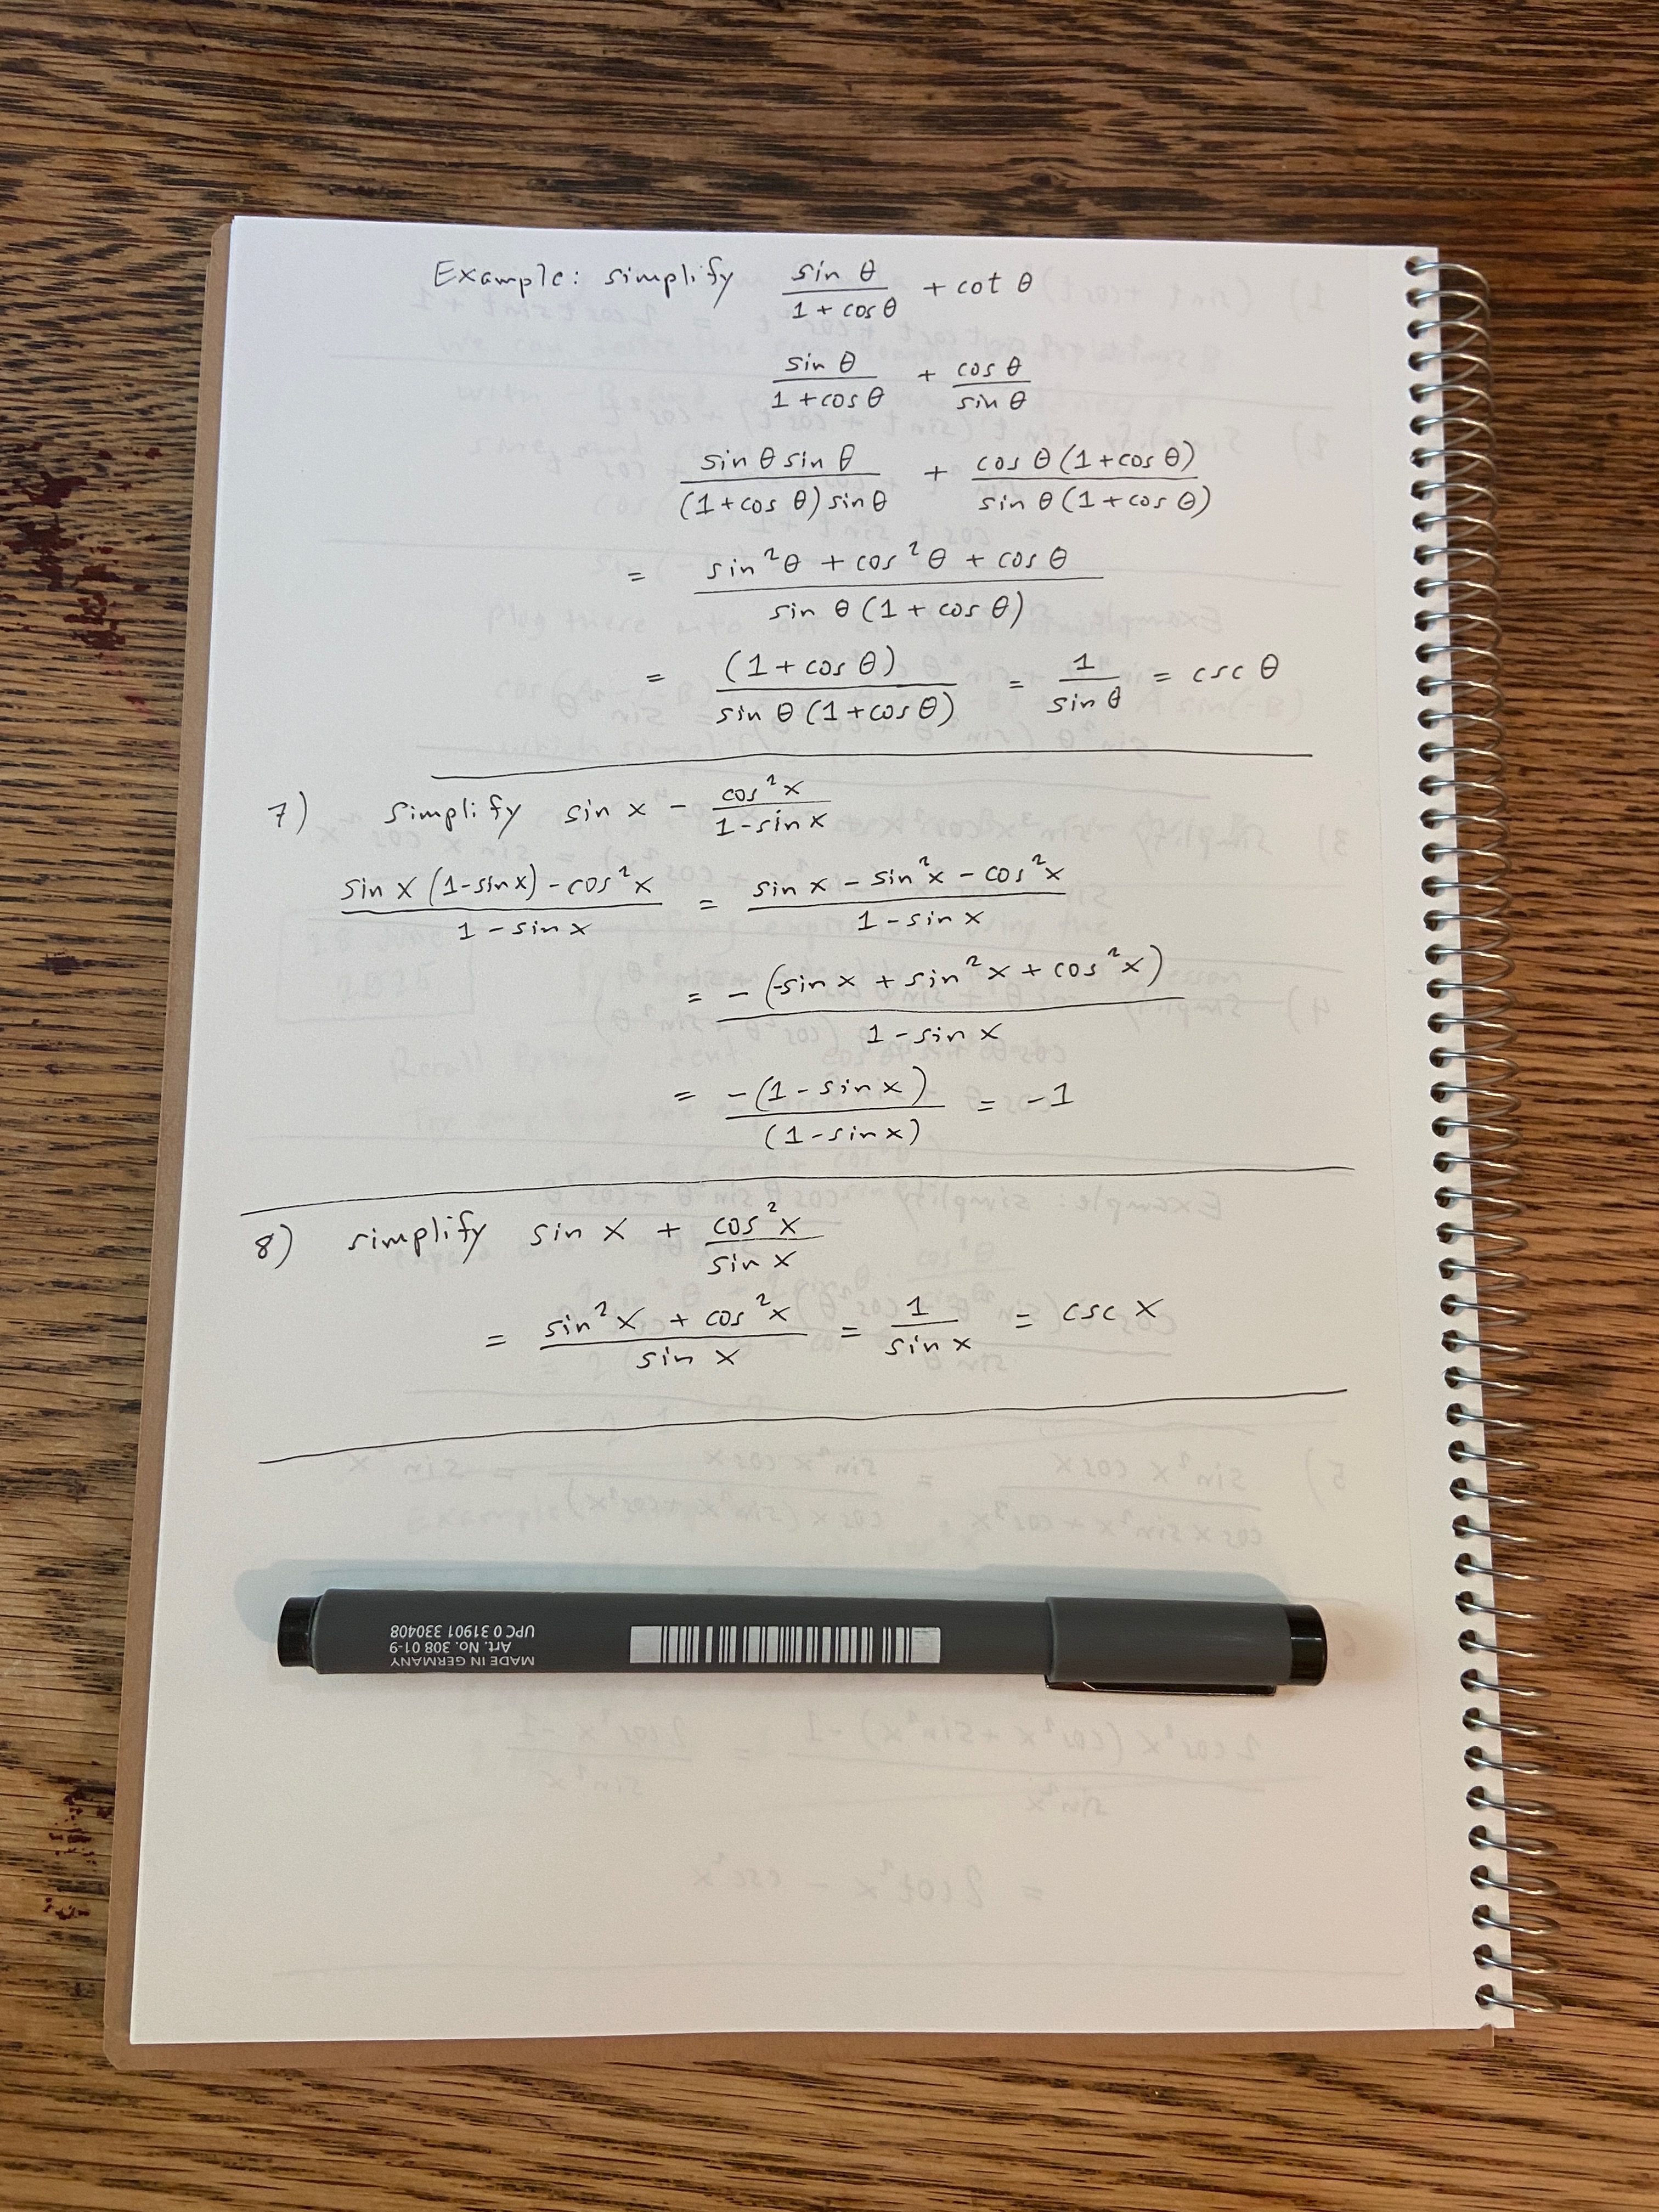 Example: simplify sin θ / (1 + cos θ) + cot θ
sin θ / (1 + cos θ) + cos θ / sin θ
sin θ sin θ / ((1 + cos θ) sin θ) + cos θ (1 + cos θ) / (sin θ (1 + cos θ))
= (sin²θ + cos²θ + cos θ) / (sin θ (1 + cos θ))
= (1 + cos θ) / (sin θ (1 + cos θ)) = 1 / sin θ = csc θ
7) simplify sin x − cos²x / (1 − sin x)
(sin x (1 − sin x) − cos²x) / (1 − sin x) = (sin x − sin²x − cos²x) / (1 − sin x)
= −(−sin x + sin²x + cos²x) / (1 − sin x)
= −(1 − sin x) / (1 − sin x) = −1
8) simplify sin x + cos²x / sin x
= (sin²x + cos²x) / sin x = 1 / sin x = csc x
MADE IN GERMANY
Art. No. 308 01-9
UPC 0 31901 330408